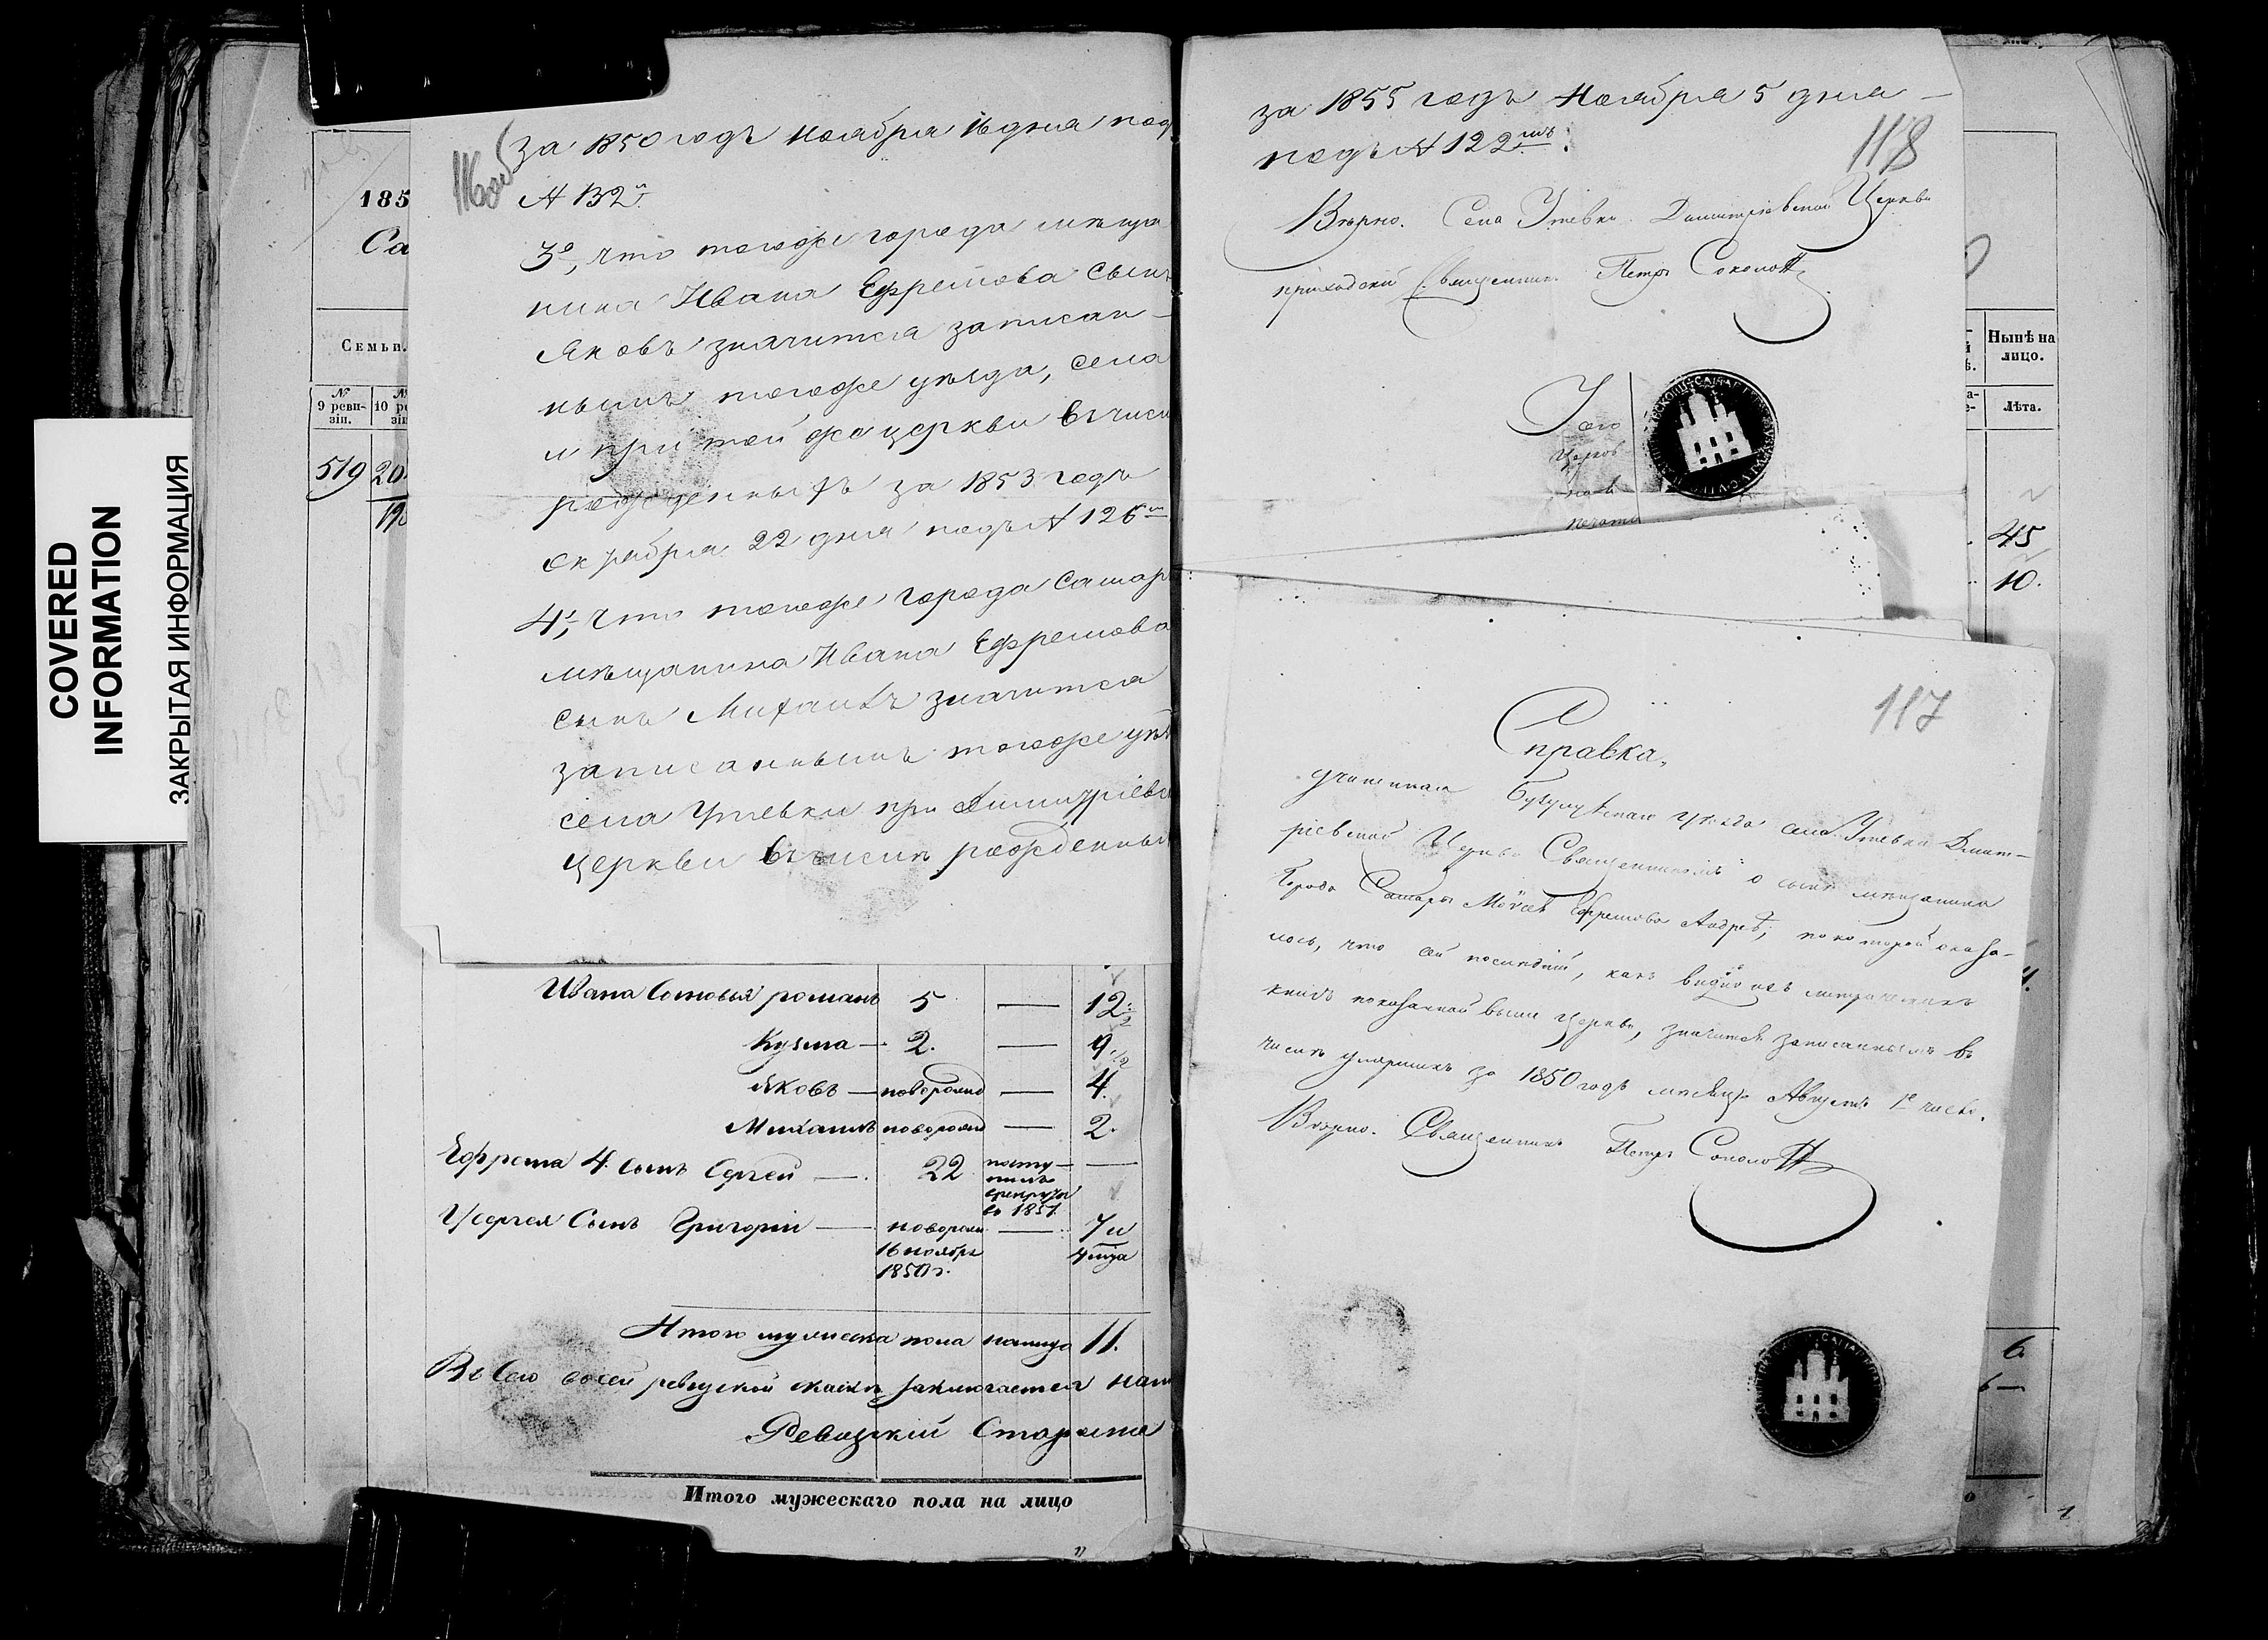 COVERED
INFORMATION
ЗАКРЫТАЯ ИНФОРМАЦИЯ
185
Са
Семьи.
№
9 реви-
зіи.
10 ре
зіи
519
20
116 об
за 1850 годъ Ноября 16 дня под
№ 132й
3е, что тогоже города мѣща
нина Ивана Ефремова сынъ
Яковъ значится записан-
нымъ тогоже уѣзда, села
и при той же церкви въ числ
рожденныхъ за 1853 годъ
Октября 22 дня подъ № 126
4е, что тогоже города Самар
мѣщанина Ивана Ефремова
сынъ Михаилъ значится
записаннымъ тогоже уѣз
села Утевки при Димитріевс
церкви въ числѣ рожденны
Ивана Сыновья романъ 5 — 12 1/2
Кузма — 2. — 9 1/2
Яковъ — новорожд — 4.
Михаилъ новорожд — 2.
Ефрема 4. сынъ Сергѣй — 22 посту-
пилъ
врекруты
въ 1851.
—
У сергея Сынъ Григорій — новорож. — 7 и
16 ноября
1850 г.
4 мца
Итого мужеска пола налицо 11.
Ревизскій Староста
Итого мужескаго пола на лицо
за 1855 годъ Ноября 5 дня —
подъ № 122мъ.
118
Вѣрно. Села Утевки Димитріевской Церкви
приходскій Священникъ Петръ Соколовъ
церков
печать
Нынѣ на
лицо.
Лѣта.
45
10.
117
Справка,
учиненная Бузулукскаго Уѣзда села Утевки Димит-
ріевской Церкви Священникомъ о сынѣ мѣщанина
Города Самары Моѵсея Ефремова Андреѣ, по которой оказа-
лось, что сей послѣдній, какъ видно изъ метрическихъ
книгъ показанной выше Церкви, значится записаннымъ въ
числѣ умершихъ за 1850 годъ мѣсяца Августа 1е число.
Вѣрно. Священникъ Петръ Соколовъ
6.